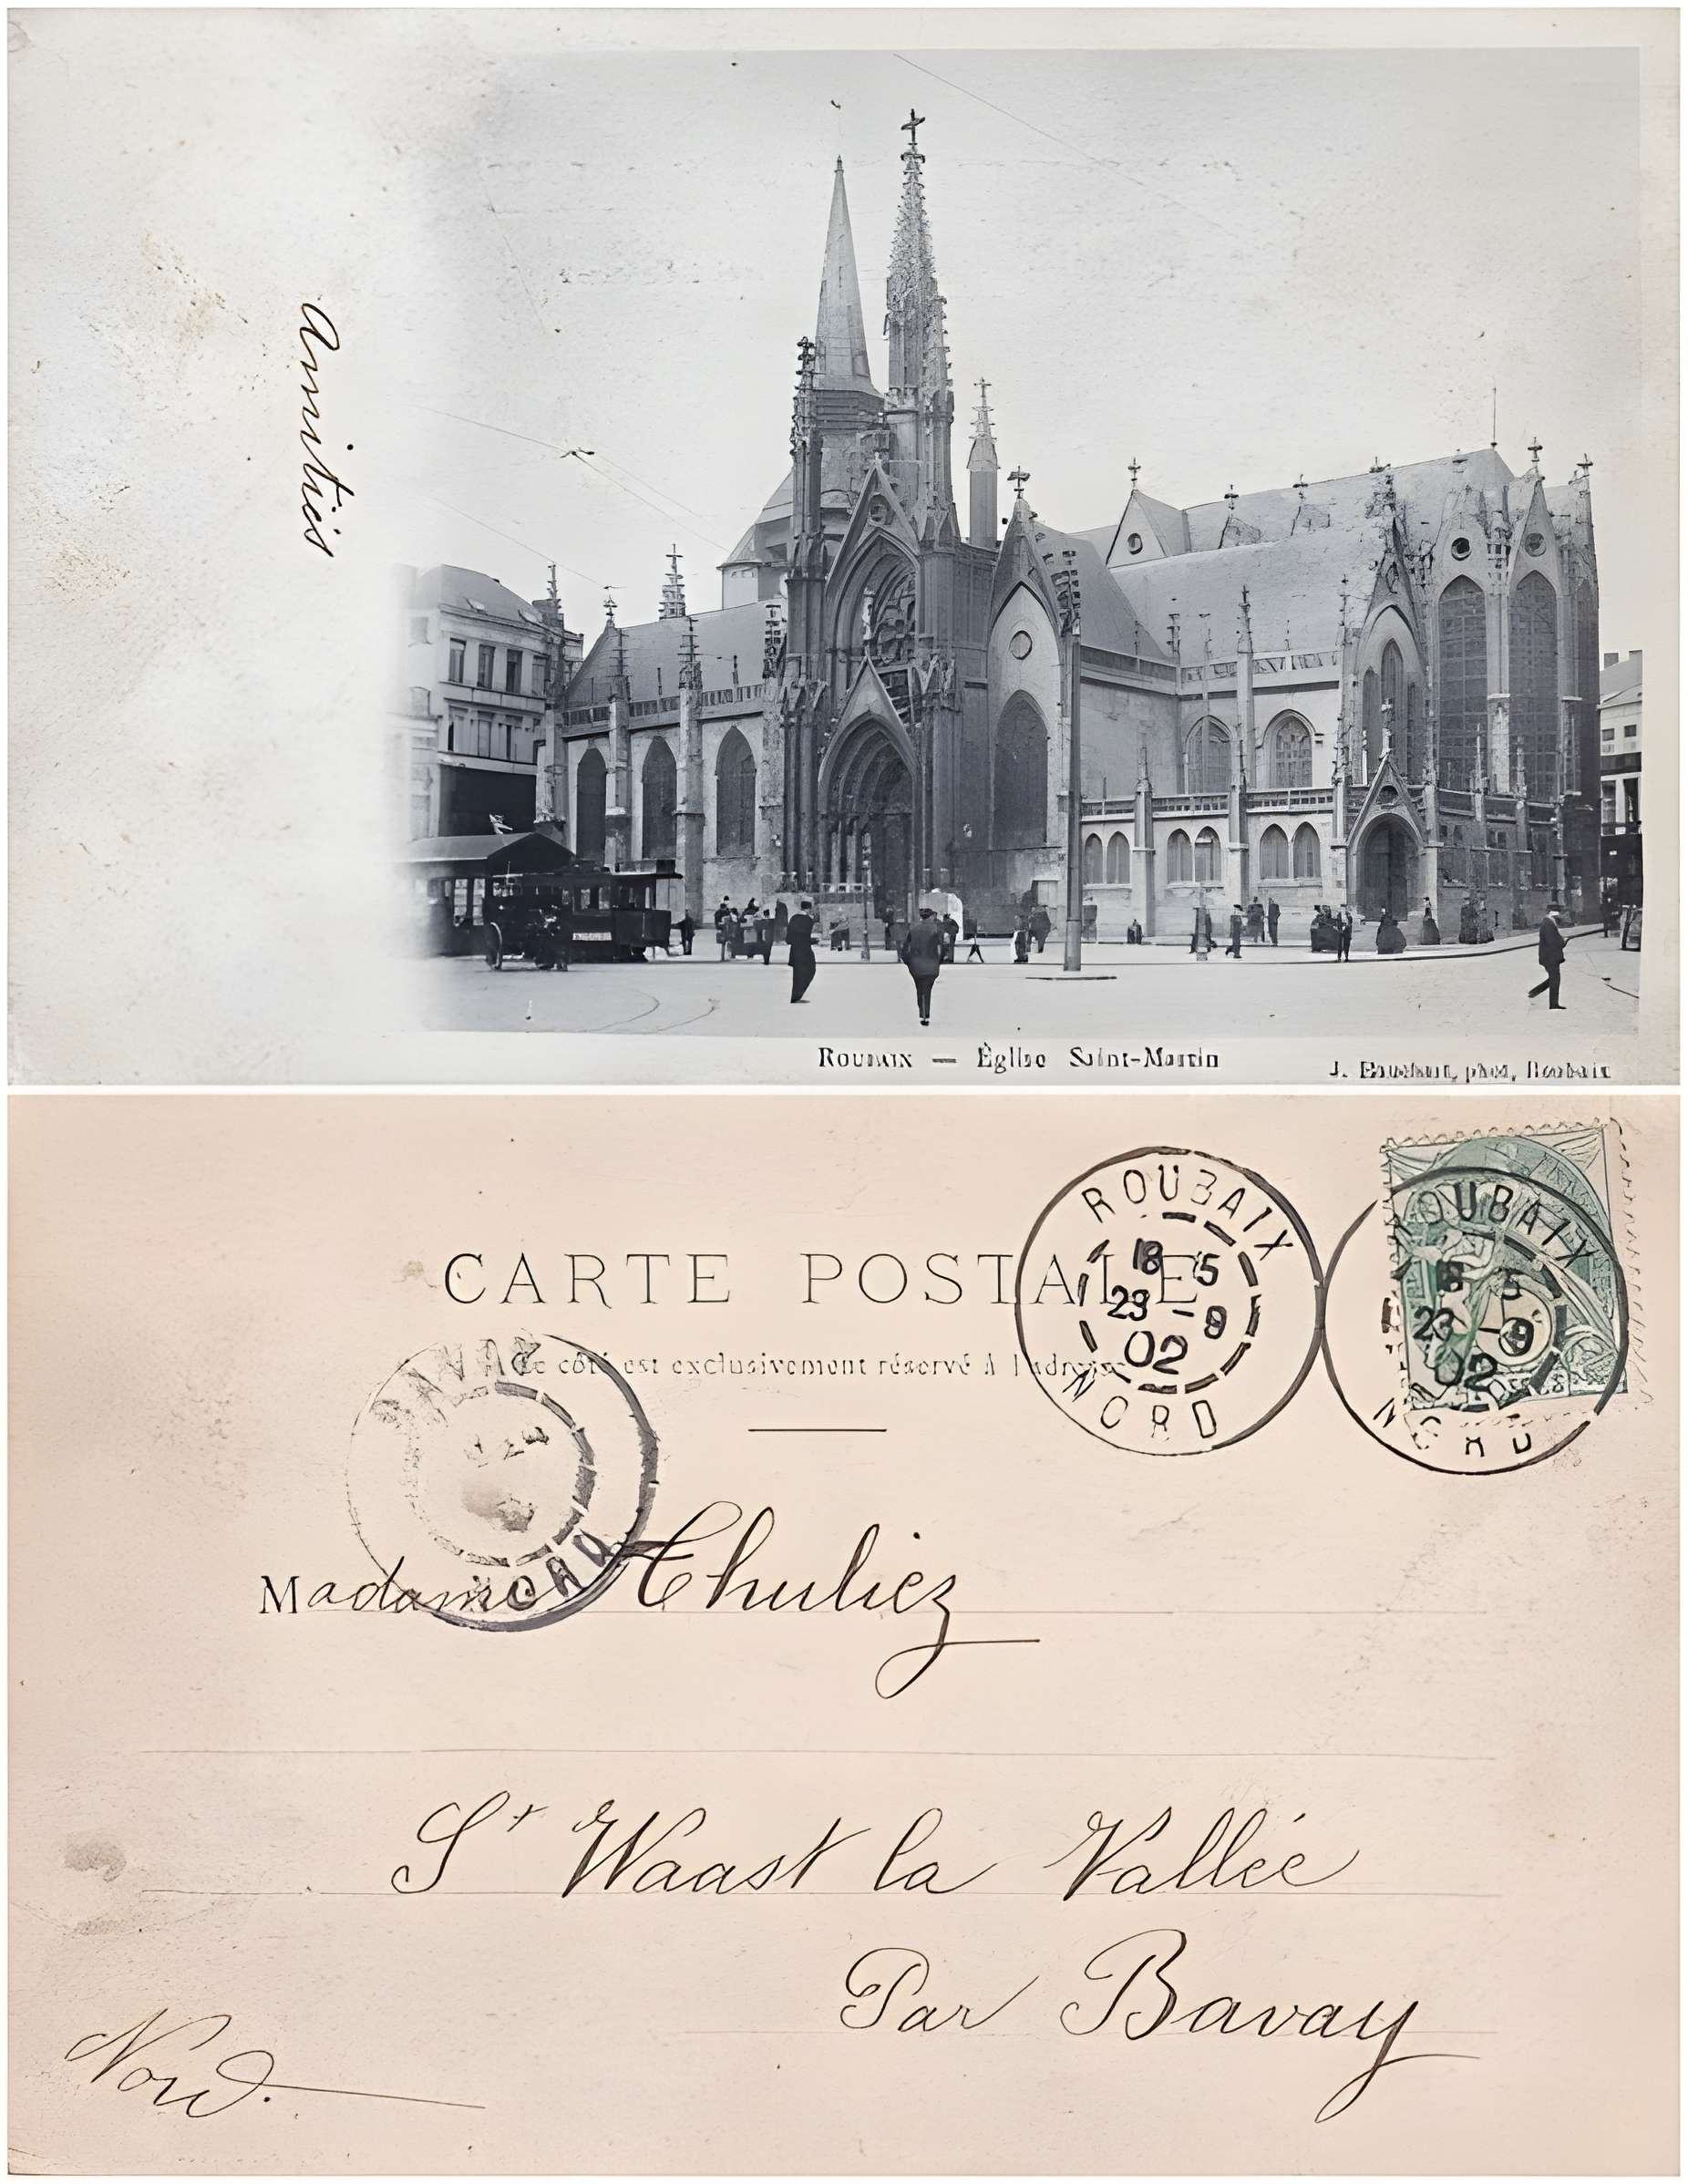 Amitiés
ROUBAIX — Église Saint-Martin
J. phot, Roubaix
CARTE POSTALE
Ce côté est exclusivement réservé à l'adresse
ROUBAIX
18 5
23 -9
02
NORD
ROUBAIX
18 5
23 -9
02
NORD
BAVAY
NORD
Madame Thuliez
St Waast la Vallée
Par Bavay
Nord.